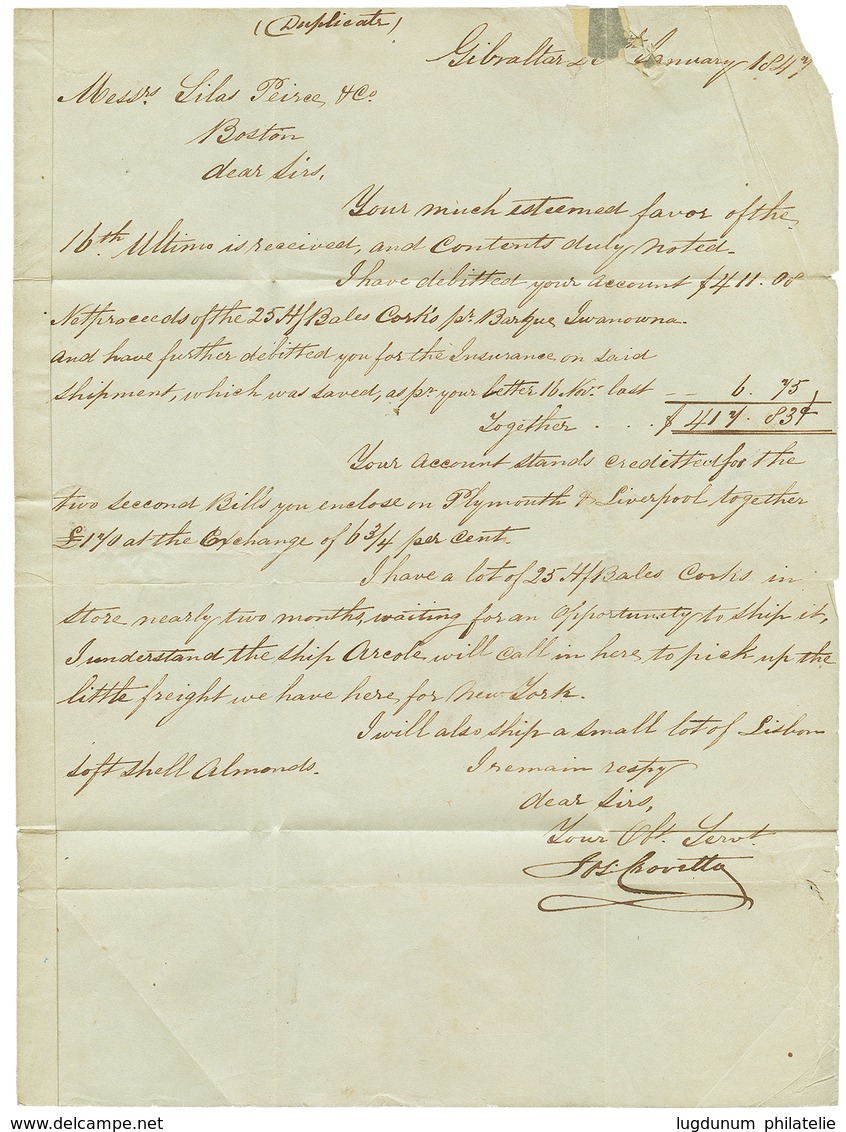 (Duplicate)
Gibraltar January 1847
Messrs Silas Peirce & Co.
Boston
dear Sirs,
Your much esteemed favor of the
16th Ultimo is received, and Contents duly noted.
I have debitted your account $411.08
Netproceeds of the 25 H/Bales Corks pr Barque Iwanowna
and have further debitted you for the Insurance on said
shipment, which was saved, as pr your letter 16 Novr last — 6.75
Together . . . . $ 417.83
Your account stands creditted for the
two seccond Bills you enclose on Plymouth & Liverpool together
£170 at the Exchange of 6 3/4 per Cent.
I have a lot of 25 H/Bales Corks in
store nearly two months, waiting for an Opportunity to ship it,
I understand the ship Arcole will call in here to pick up the
little freight we have here for New York.
I will also ship a small lot of Lisbon
soft shell Almonds.
I remain respy
dear Sirs,
Your Obt. Servt.
Jos. Crovetto
www.delcampe.net
lugdunum philatelie